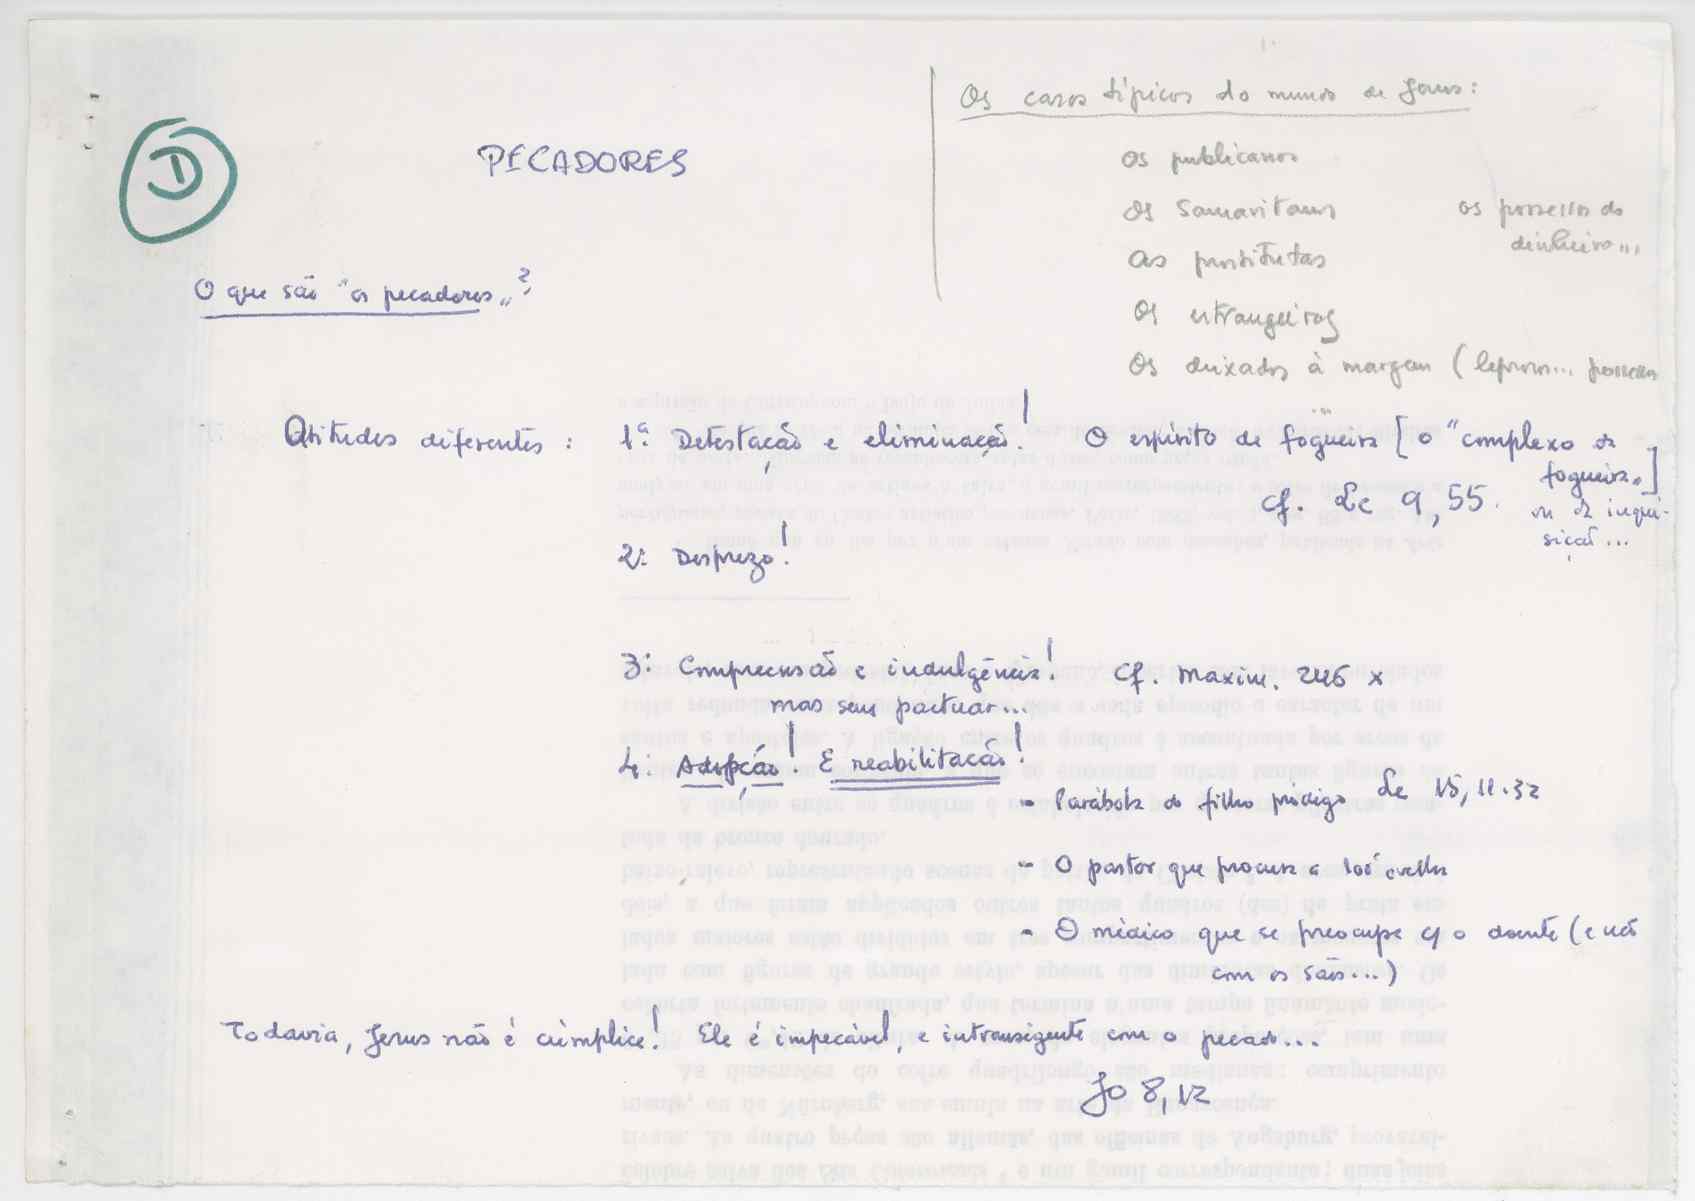 1
PECADORES
Os casos típicos do mundo de Jesus:
os publicanos
os Samaritanos
os possessos do
dinheiro...
as prostitutas
os estrangeiros
Os deixados à margem (leprosos... possessos
...
O que são "os pecadores"?
Atitudes diferentes :
1ª. Detestação e eliminação! O espírito de fogueira [o "complexo da
fogueira"]
ou da inqui-
sição...
cf. Lc 9,55.
2ª. Desprezo!
3ª. Compreensão e indulgência! Cf. Maxim. 246 x
mas sem pactuar...
4. Adopção! E reabilitação!
- Parábola do filho pródigo Lc 15, 11.32
- O pastor que procura a 100ª ovelha
- O médico que se preocupa c/ o doente (e não
com os sãos...)
Todavia, Jesus não é cúmplice! Ele é impecável, e intransigente com o pecado...
Jo 8, 12